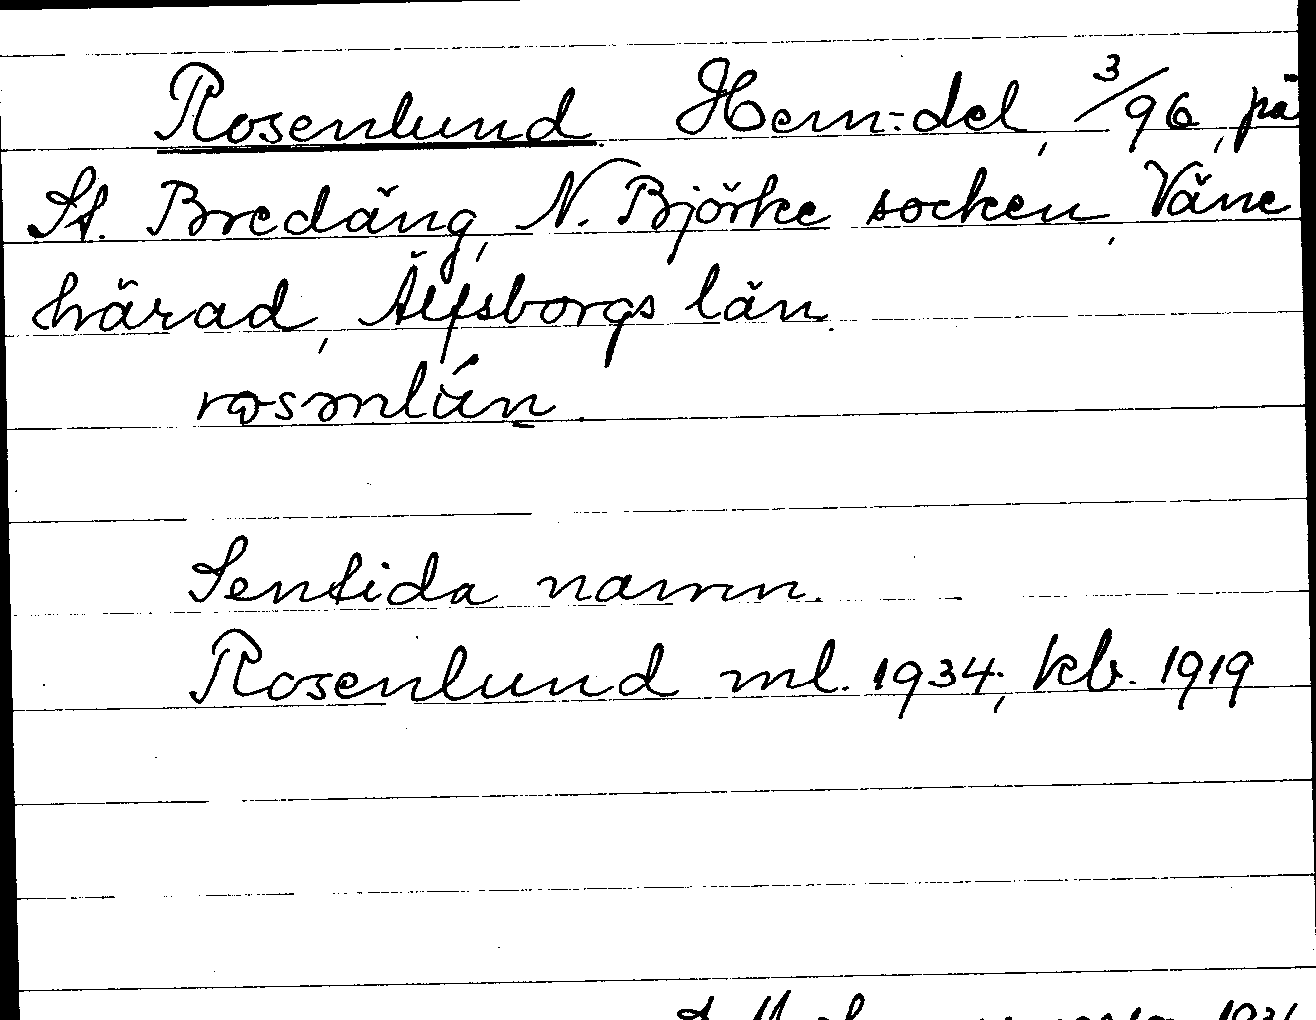 Rosenlund. Hem:del, 3/96, på
St. Bredäng, N. Björke socken, Väne
härad, Älfsborgs län.
Sentida namn.
Rosenlund ml. 1934; kb. 1919